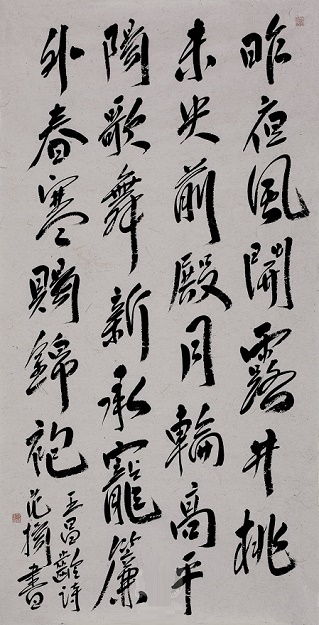 昨夜風開露井桃
未央前殿月輪高平
陽歌舞新承寵簾
外春寒賜錦袍
王昌齡詩
范揚書